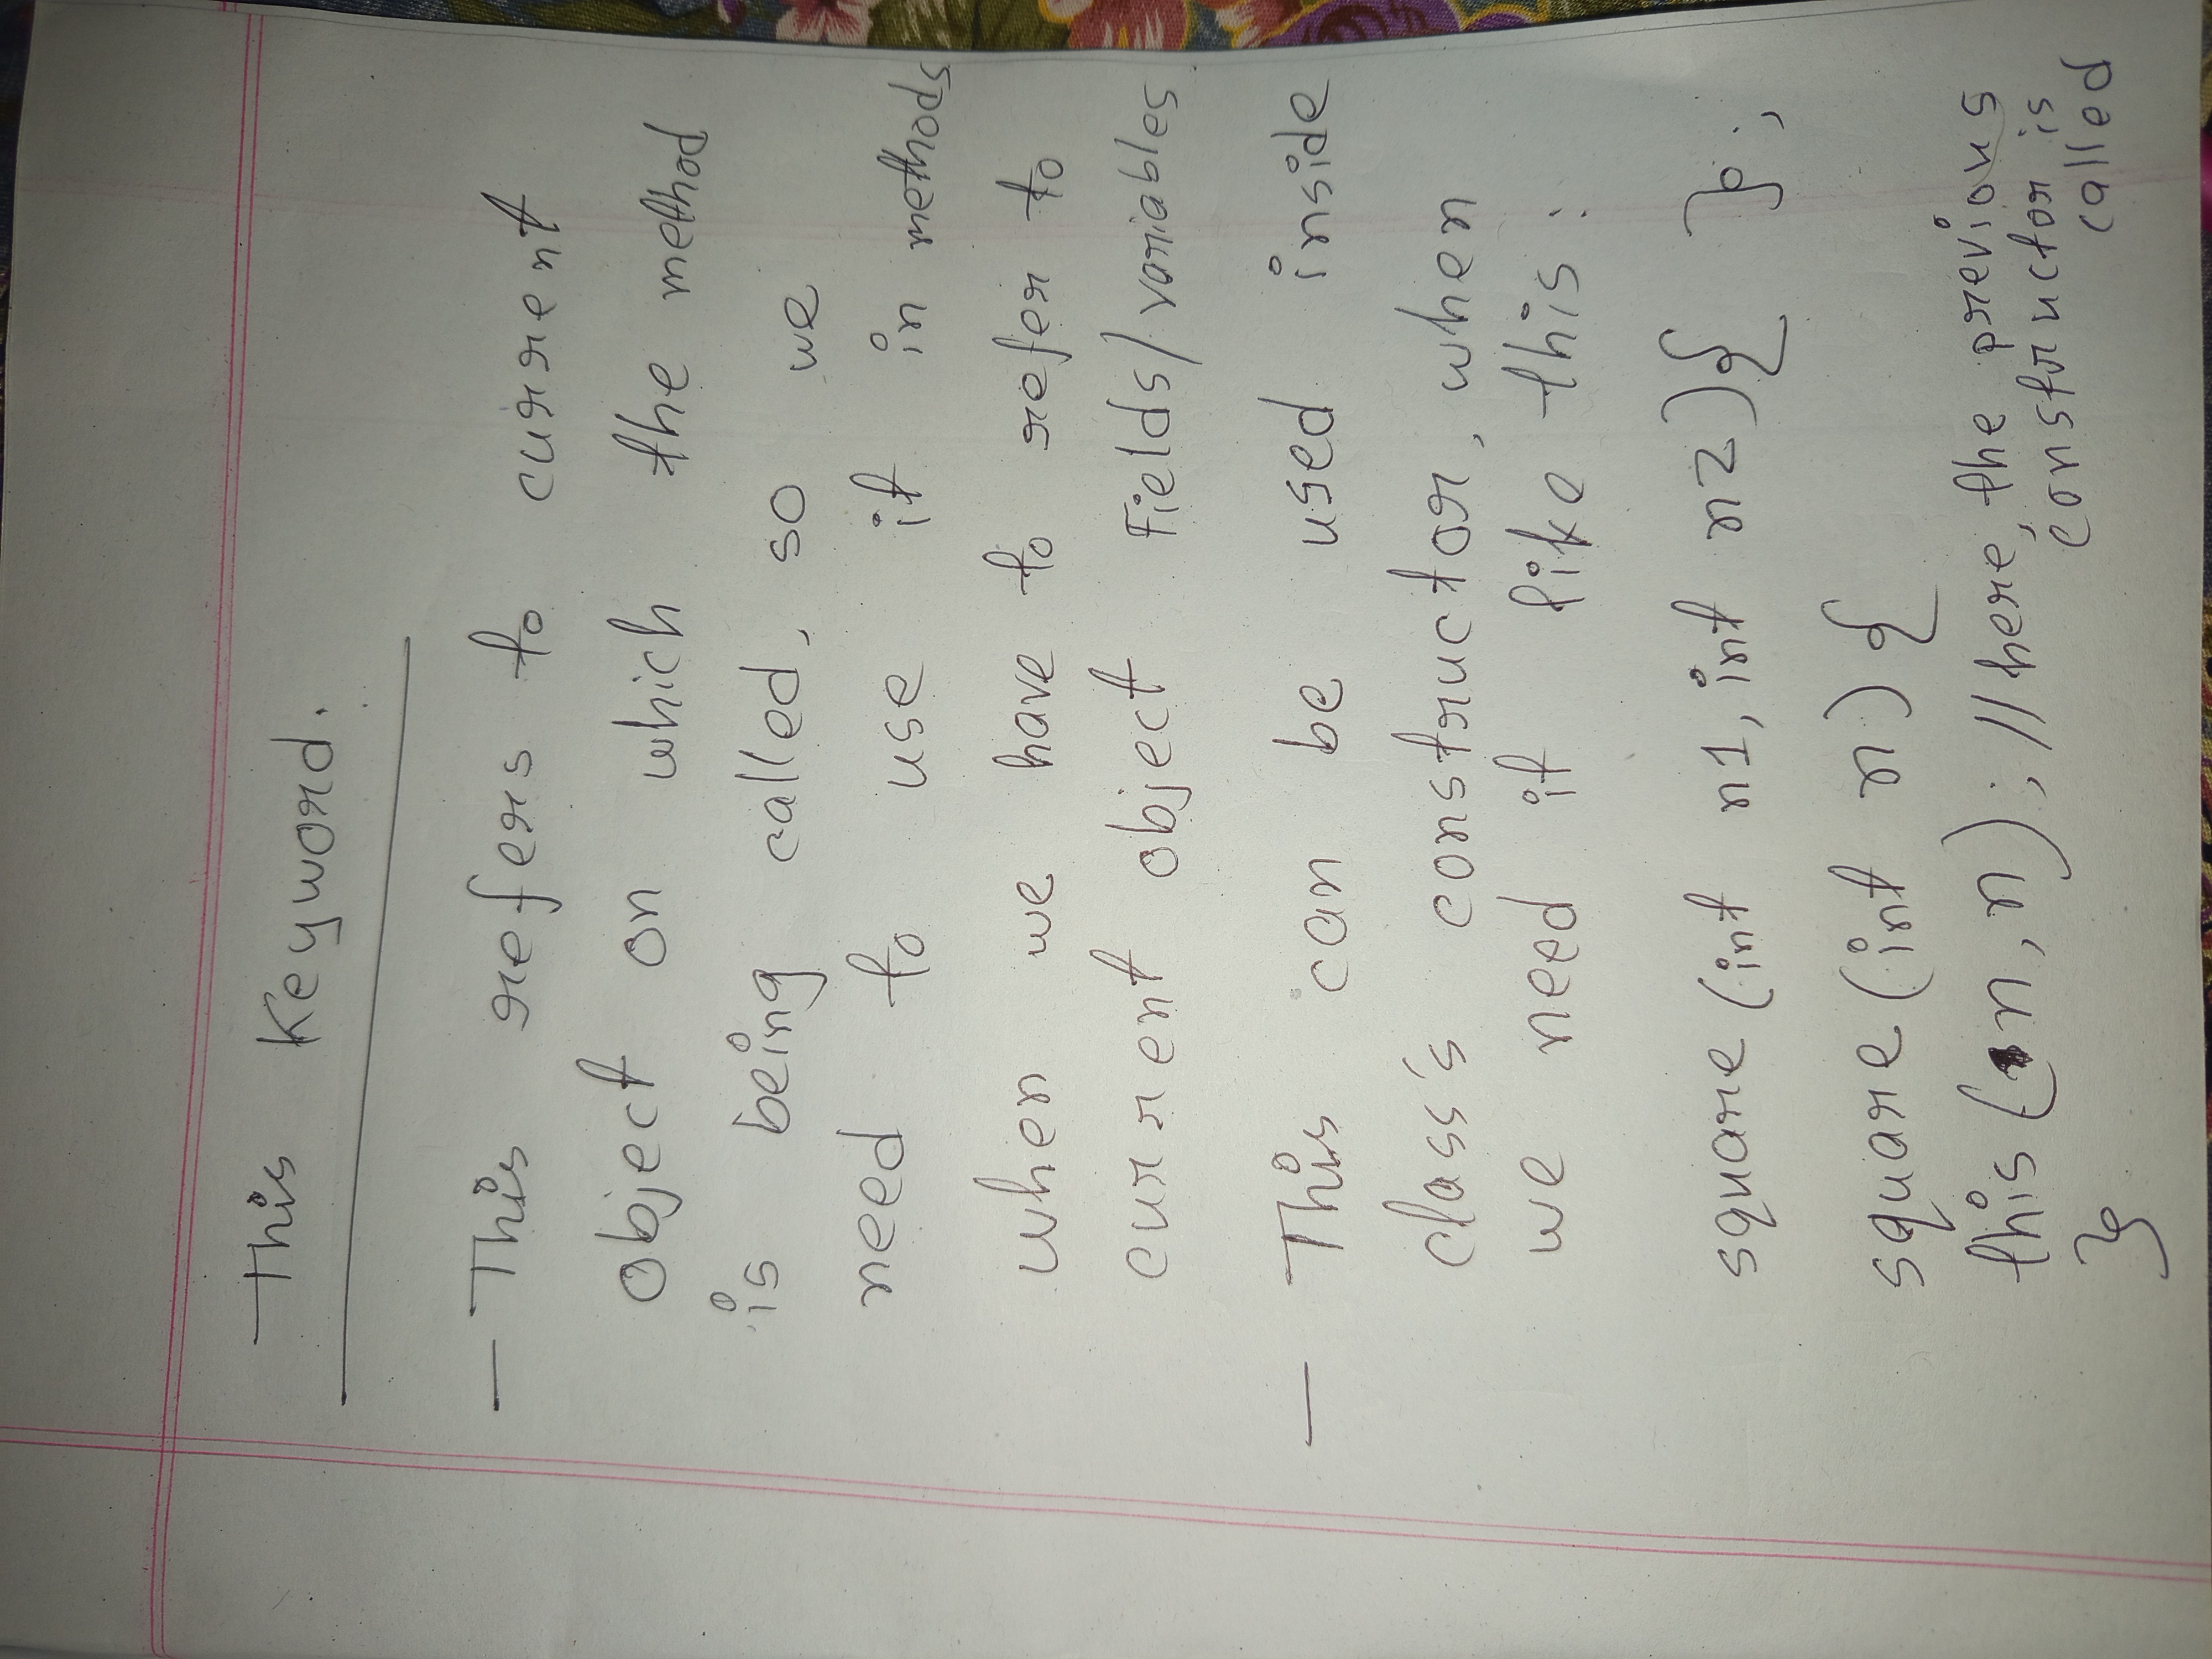 This Keyword.
- This refers to current
object on which the method
is being called, so we
need to use it in methods
when we have to refer to
current object Fields/variables
- This can be used inside
class's constructor, when
we need it like this:
square (int n1, int n2){ };
square (int n) {
this (n, n); // here, the previous
constructor is
called
}